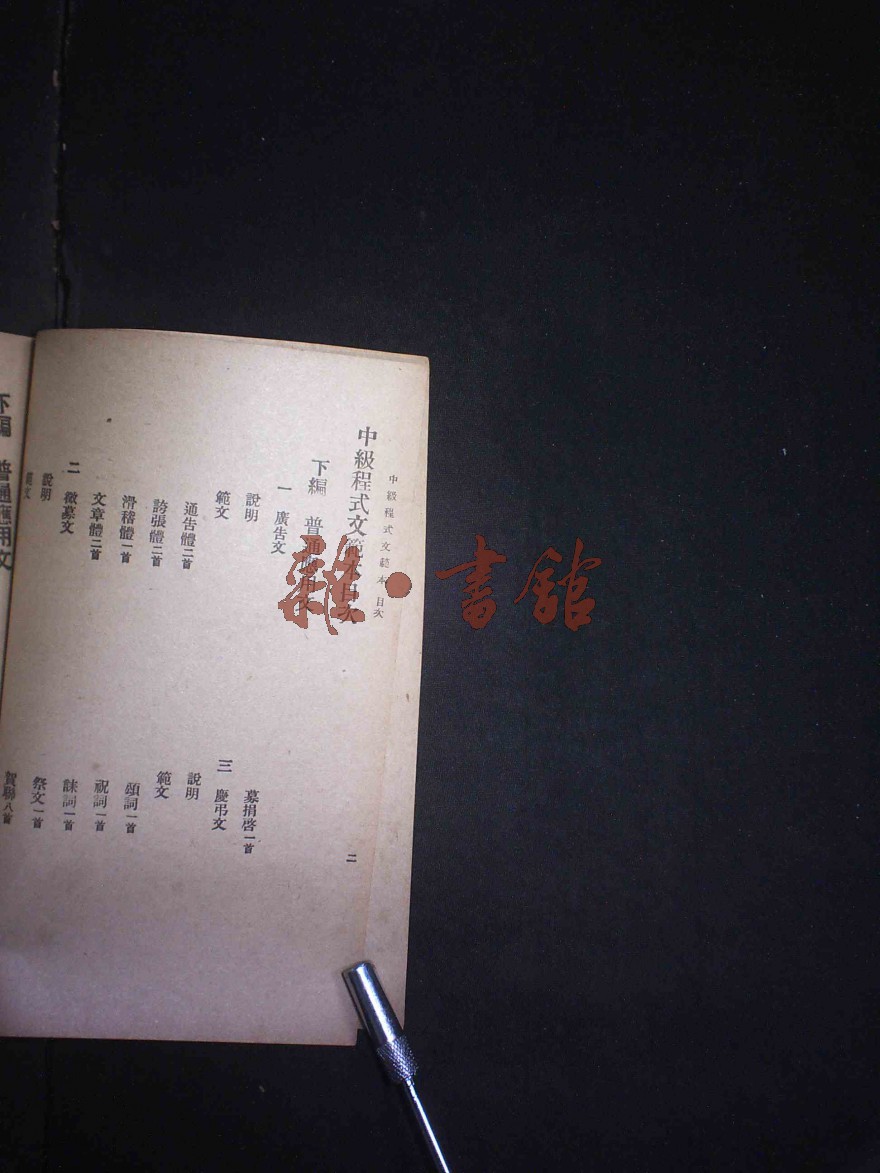 中級程式文範本 目次
中級程式文範本目次
下編 普通應用文
一 廣告文
說明
範文
通告體二首
誇張體二首
滑稽體一首
文章體二首
二 徵募文
說明
範文
募捐啓一首
三 慶弔文
說明
範文
頌詞一首
祝詞一首
誄詞一首
祭文一首
賀聯八首
二
下編 普通應用文
雜·書館